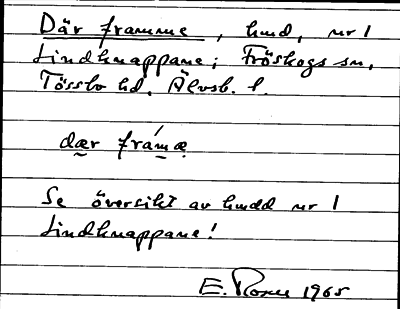 Där framme, hmd, nr 1
Lindknappane; Fröskogs sn,
Tössbo hd, Älvsb. l.
dær frámæ
Se översikt av hmdd nr 1
Lindknappane!
E. 1965